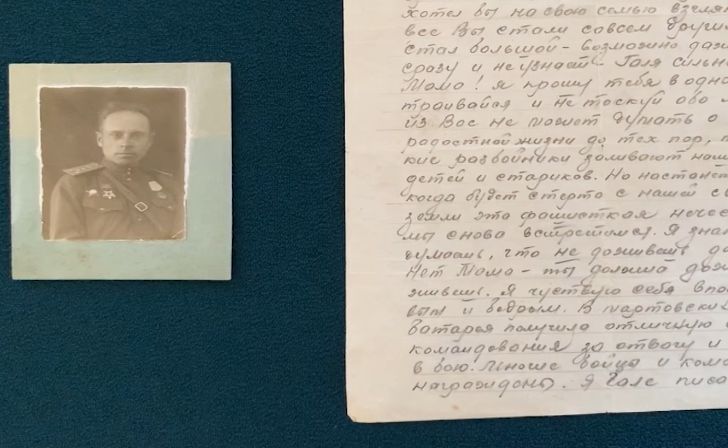 хотел бы на свою семью взгля
все Вы стали совсем други
стал большой - возможно да
сразу и не узнает. Галя сильн
Мама! я прошу тебя в одн
траивайся и не тоскуй обо
из Вас не может думать о
радостной жизни до тех пор, п
кие разбойники заливают наш
детей и стариков. Но настанет
когда будет стерта с нашей с
земли эта фашисткая нечес
мы снова встретимся. Я зна
думаешь, что не доживешь до
Нет Мама - ты должна дож
живешь. Я чуствую себя впо
вым и бодрым. В мартовски
батарея получила отличную
командования за отвагу и
в бою. Многие бойцы и кома
награждоны. Я Гале писа